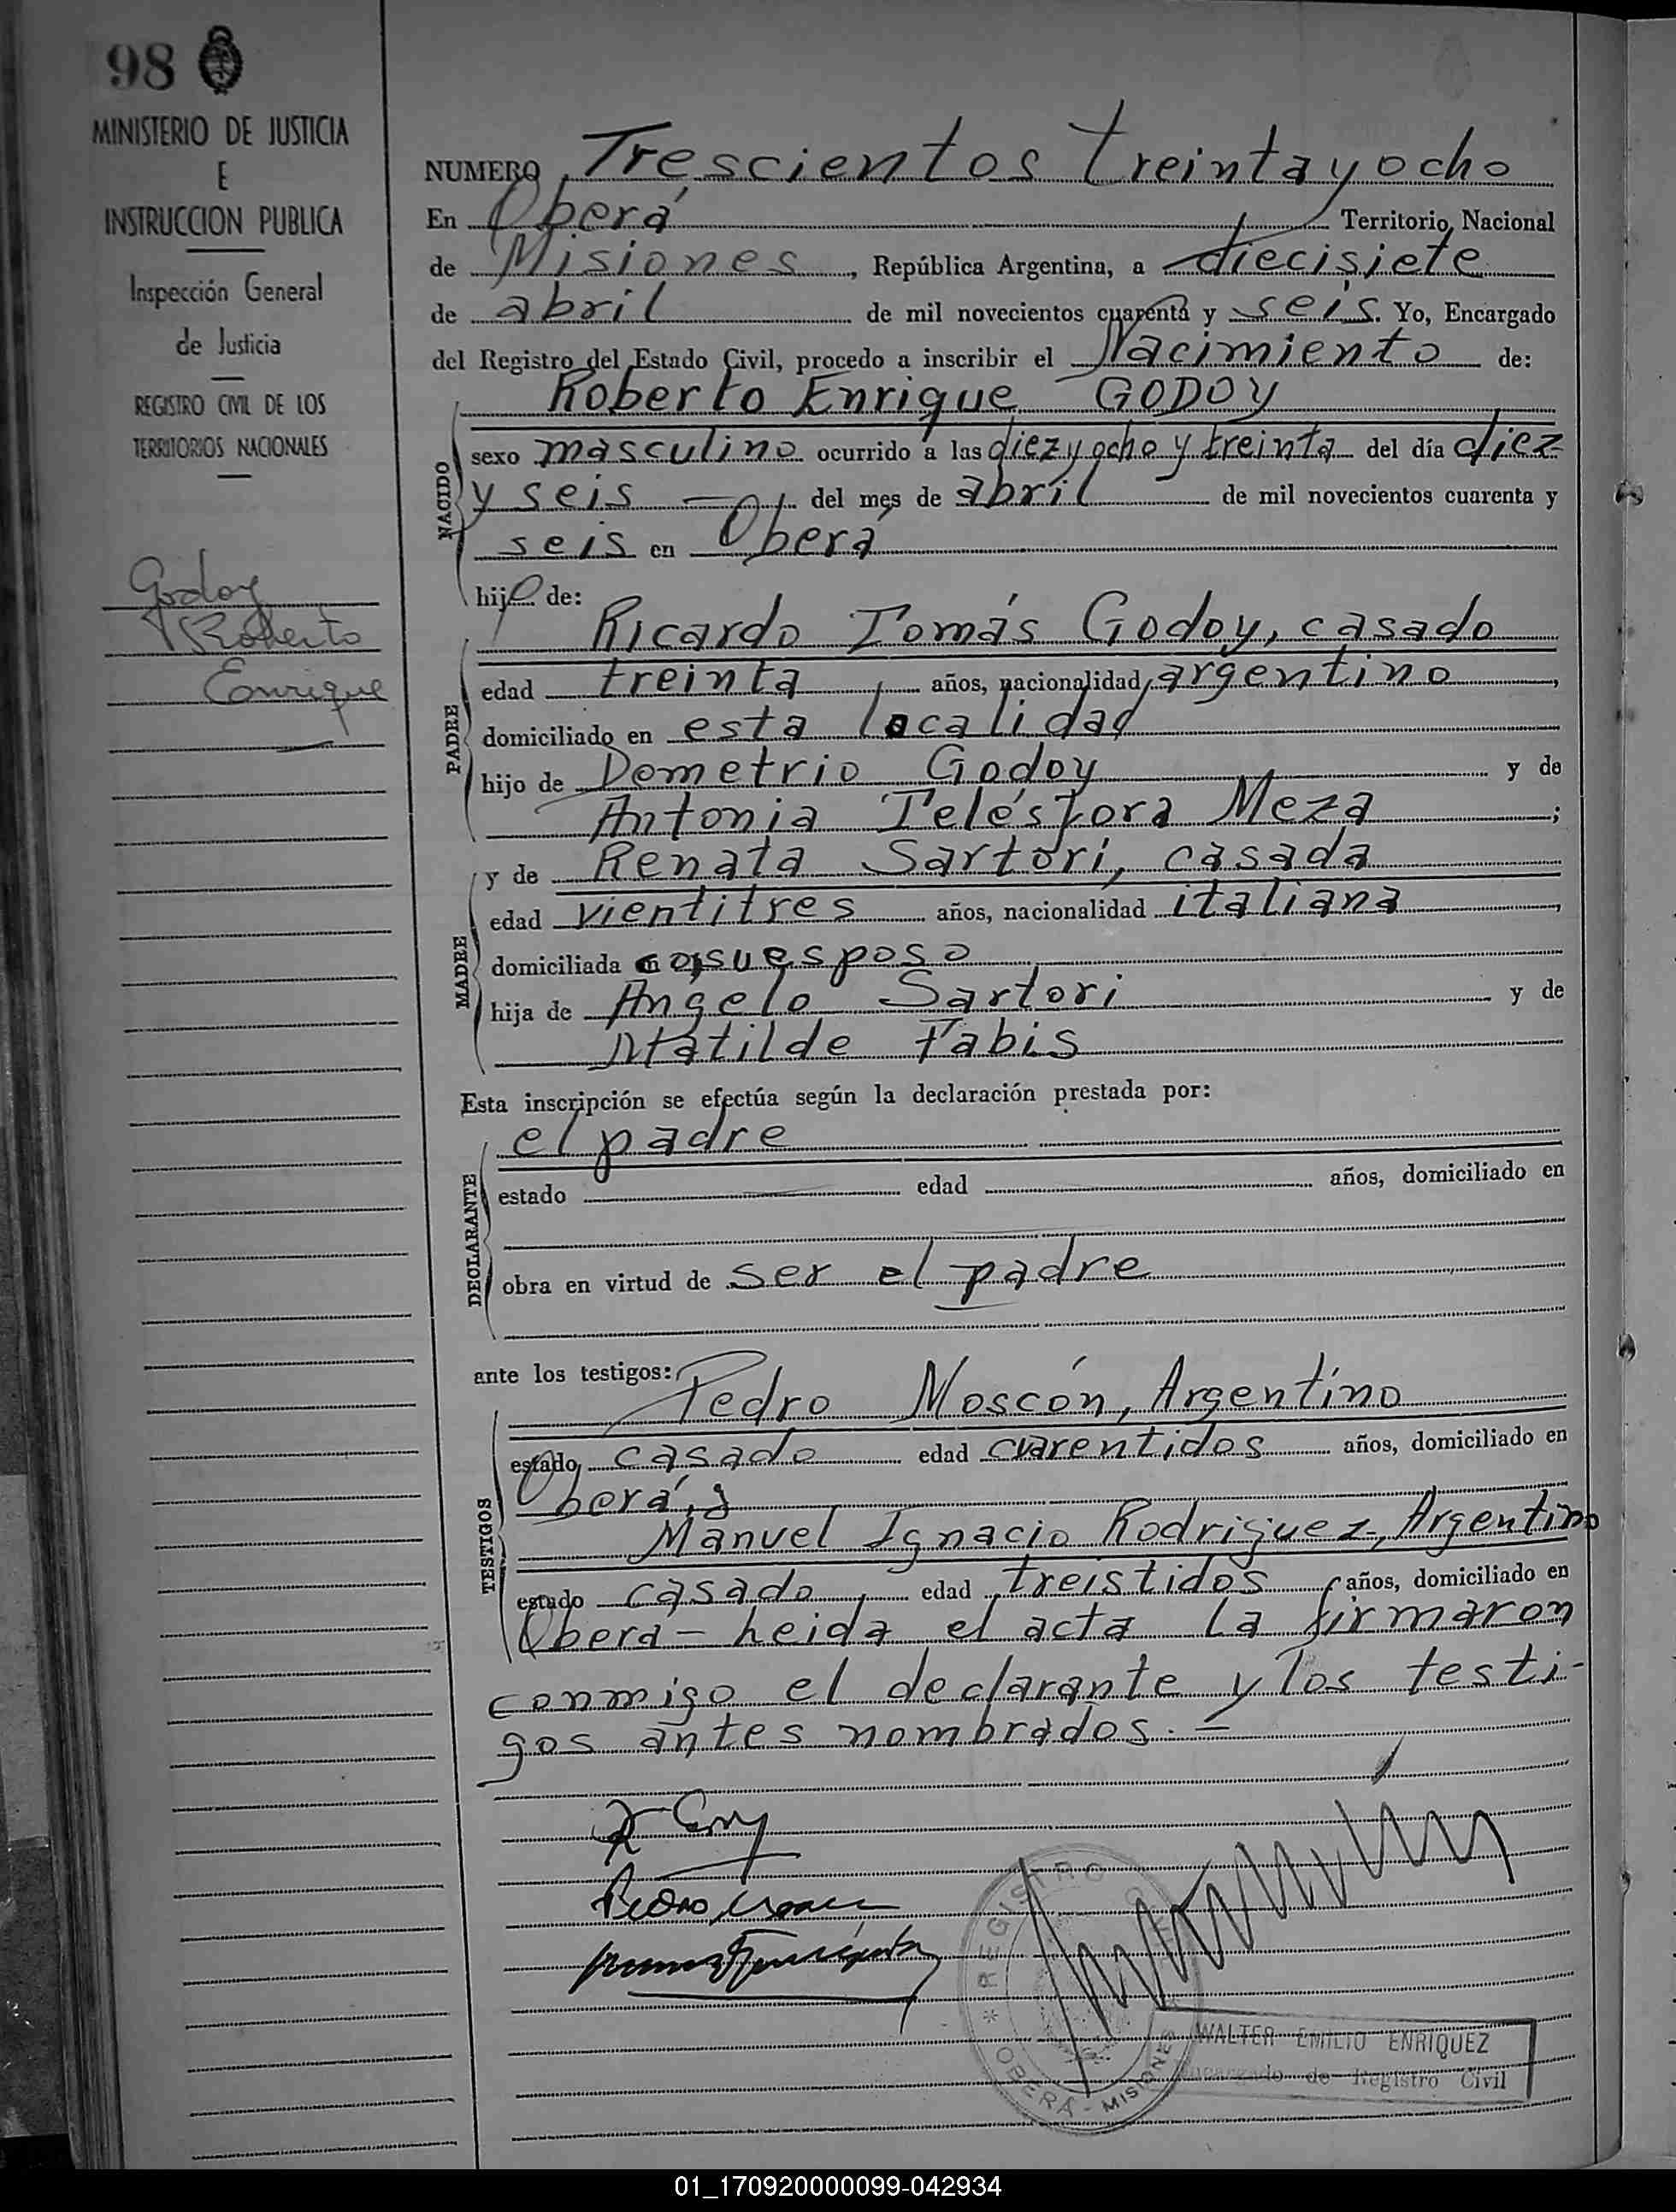 98
MINISTERIO DE JUSTICIA
E
INSTRUCCION PUBLICA
Inspección General
de Justicia
REGISTRO CIVIL DE LOS
TERRITORIOS NACIONALES
Godoy
Roberto
Enrique
NUMERO Trescientos treinta y ocho
En Oberá Territorio Nacional
de Misiones, República Argentina, a diecisiete
de abril de mil novecientos cuarenta y seis. Yo, Encargado
del Registro del Estado Civil, procedo a inscribir el Nacimiento de:
Roberto Enrique GODOY
NACIDO
sexo masculino ocurrido a las diez y ocho y treinta del día diez
y seis = del mes de abril de mil novecientos cuarenta y
seis en Oberá
hijo de:
Ricardo Tomás Godoy, casado
PADRE
edad treinta años, nacionalidad argentino,
domiciliado en esta localidad
hijo de Demetrio Godoy y de
Antonia Telésfora Meza;
y de Renata Sartori, casada
MADRE
edad vientitres años, nacionalidad italiana,
domiciliada con su esposo
hija de Angelo Sartori y de
Matilde Fabis
Esta inscripción se efectúa según la declaración prestada por:
el padre
DECLARANTE
estado edad años, domiciliado en
obra en virtud de ser el padre
ante los testigos:
Pedro Moscón, Argentino
TESTIGOS
estado casado edad cuarentidos años, domiciliado en
Oberá, y
Manuel Ignacio Rodriguez, Argentino
estado casado edad treistidos años, domiciliado en
Oberá - heida el acta la firmaron
conmigo el declarante y los testi-
gos antes nombrados. =
REGISTRO
OBERÁ - MISIONES
WALTER EMILIO ENRIQUEZ
Encargado de Registro Civil
01_170920000099-042934